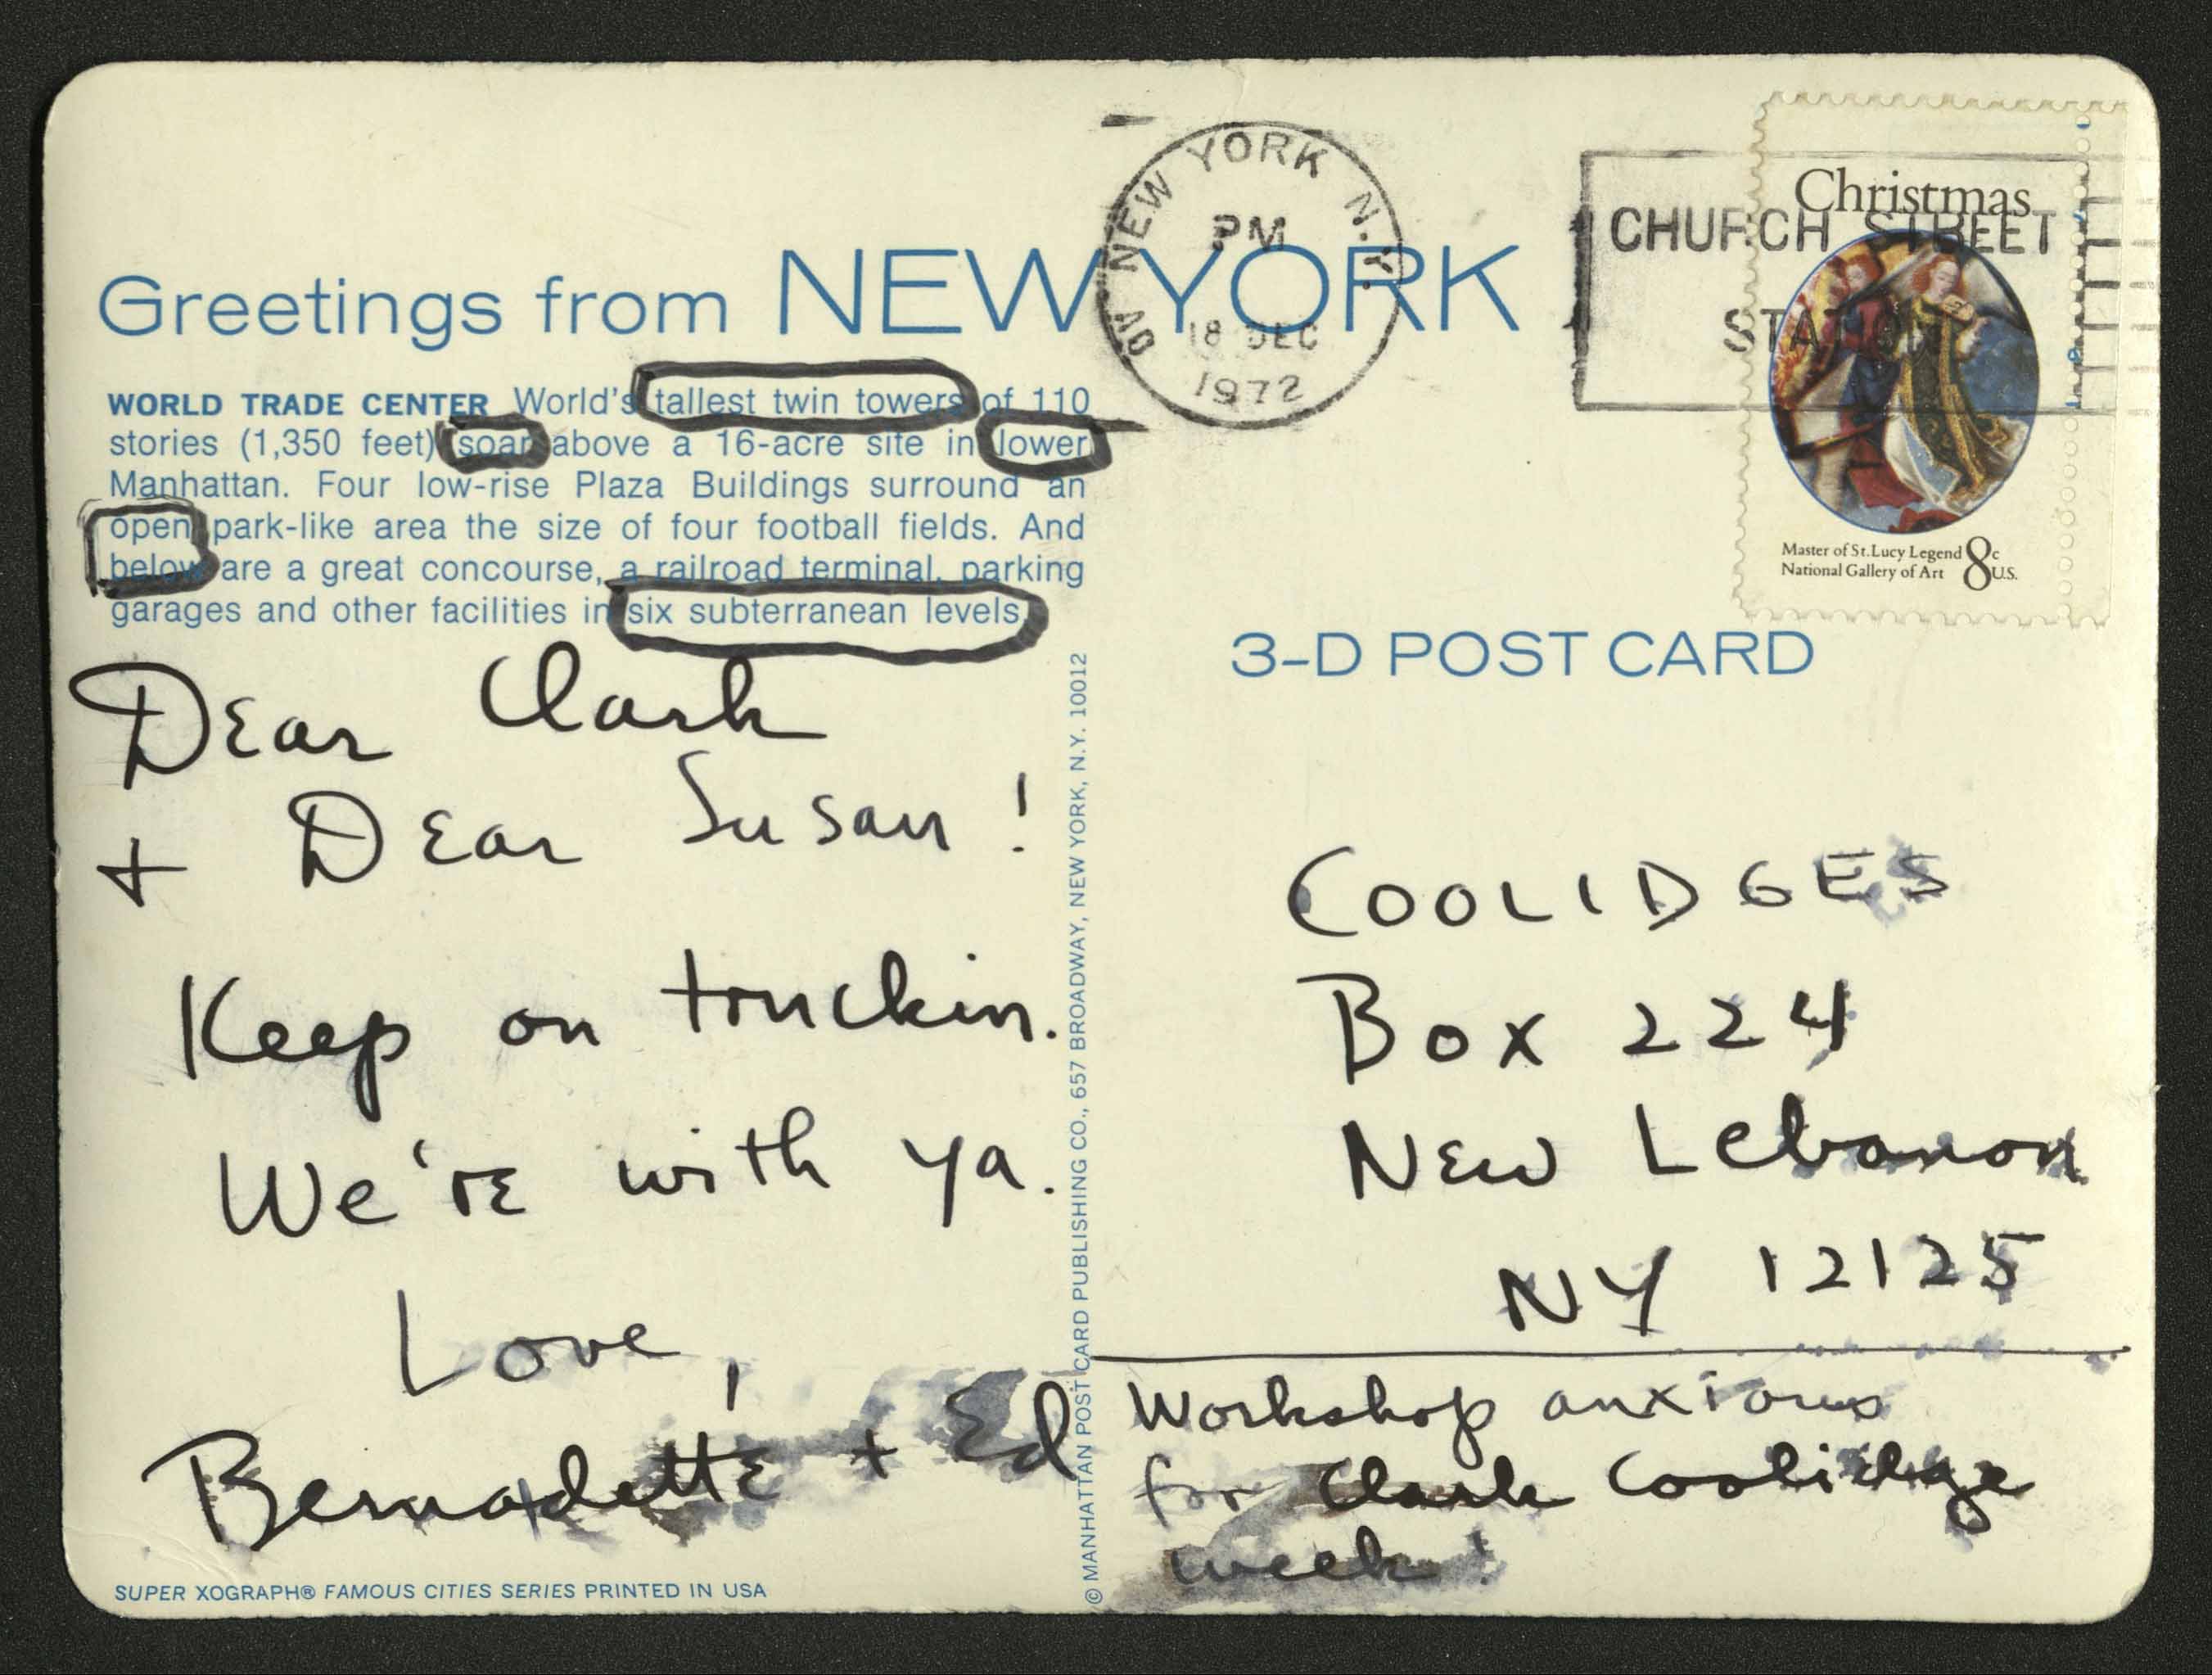 Greetings from NEW YORK
WORLD TRADE CENTER World's tallest twin towers of 110
stories (1,350 feet) soar above a 16-acre site in lower
Manhattan. Four low-rise Plaza Buildings surround an
open park-like area the size of four football fields. And
below are a great concourse, a railroad terminal, parking
garages and other facilities in six subterranean levels.
Dear Clark
+ Dear Susan!
Keep on truckin.
We're with ya.
Love,
Bernadette + Ed
SUPER XOGRAPH® FAMOUS CITIES SERIES PRINTED IN USA
© MANHATTAN POST CARD PUBLISHING CO., 657 BROADWAY, NEW YORK, N.Y. 10012
NEW YORK N.Y.
PM
18 DEC
1972
CHURCH STREET
STATION
Christmas
Master of St. Lucy Legend
National Gallery of Art
8c U.S.
3-D POST CARD
COOLIDGES
Box 224
New Lebanon
NY 12125
Workshop anxious
for Clark Coolidge
week!